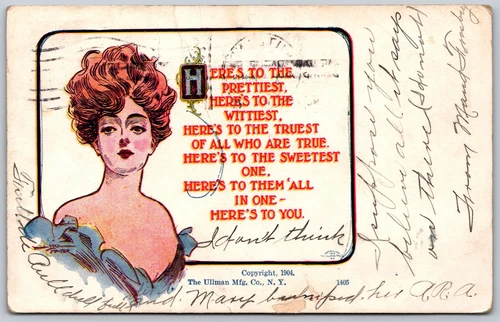 HERE'S TO THE
PRETTIEST,
HERE'S TO THE
WITTIEST,
HERE'S TO THE TRUEST
OF ALL WHO ARE TRUE.
HERE'S TO THE SWEETEST
ONE,
HERE'S TO THEM 'ALL
IN ONE~
HERE'S TO YOU.
I don't think
Copyright, 1904,
The Ullman Mfg. Co., N. Y.
1405
I suppose you
believe all it says
on there
From Maud
Mary
his A.P.A.